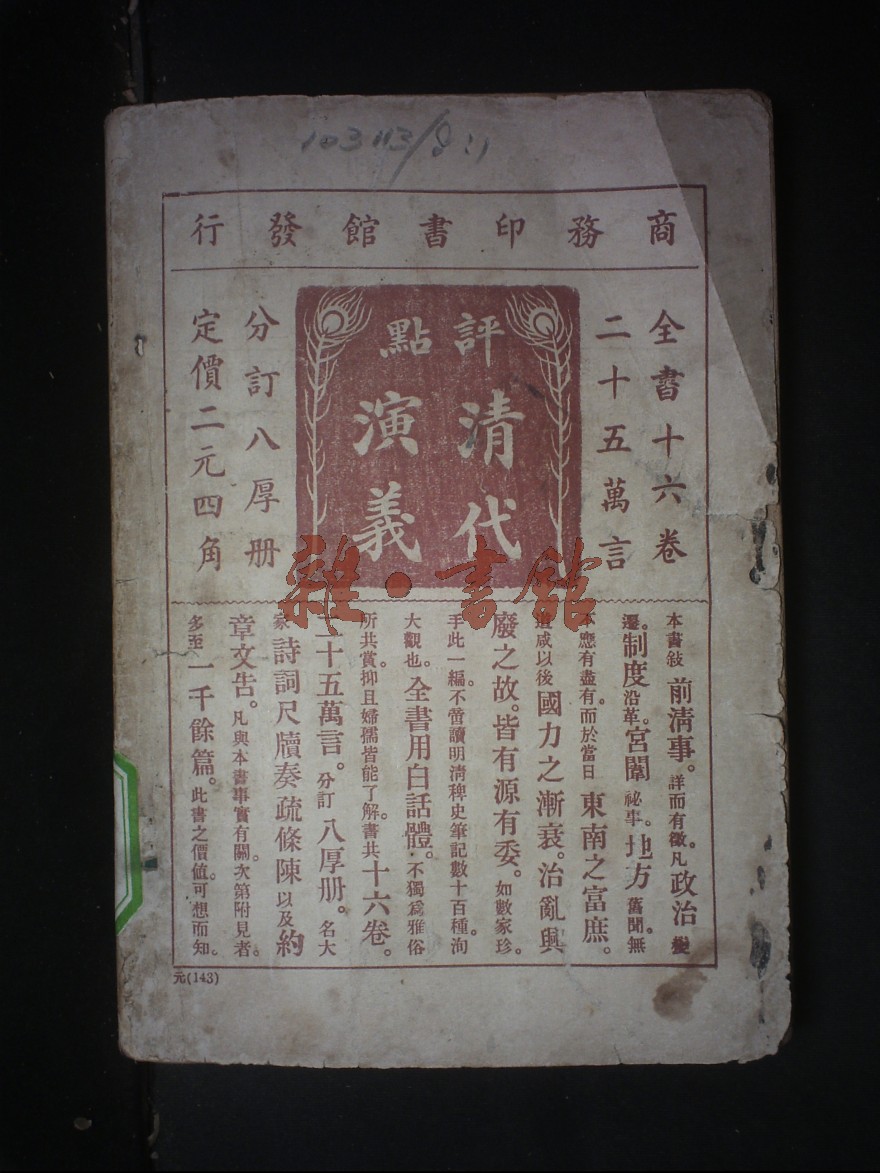 103 113/8:1
商務印書館發行
全書十六卷
二十五萬言
評點
清代
演義
分訂八厚册
定價二元四角
雜·書館
本書敍前清事。詳而有徵。凡政治變
遷。制度沿革。宮闈祕事。地方舊聞。無
不應有盡有。而於當日東南之富庶。
道咸以後國力之漸衰。治亂與
廢之故。皆有源有委。如數家珍。
手此一編。不啻讀明淸稗史筆記數十百種。洵
大觀也。全書用白話體。不獨爲雅俗
所共賞。抑且婦孺皆能了解。書共十六卷。
二十五萬言。分訂八厚册。名大
家詩詞尺牘奏疏條陳以及約
章文告。凡與本書事實有關。次第附見者。
多至一千餘篇。此書之價値。可想而知。
元(143)